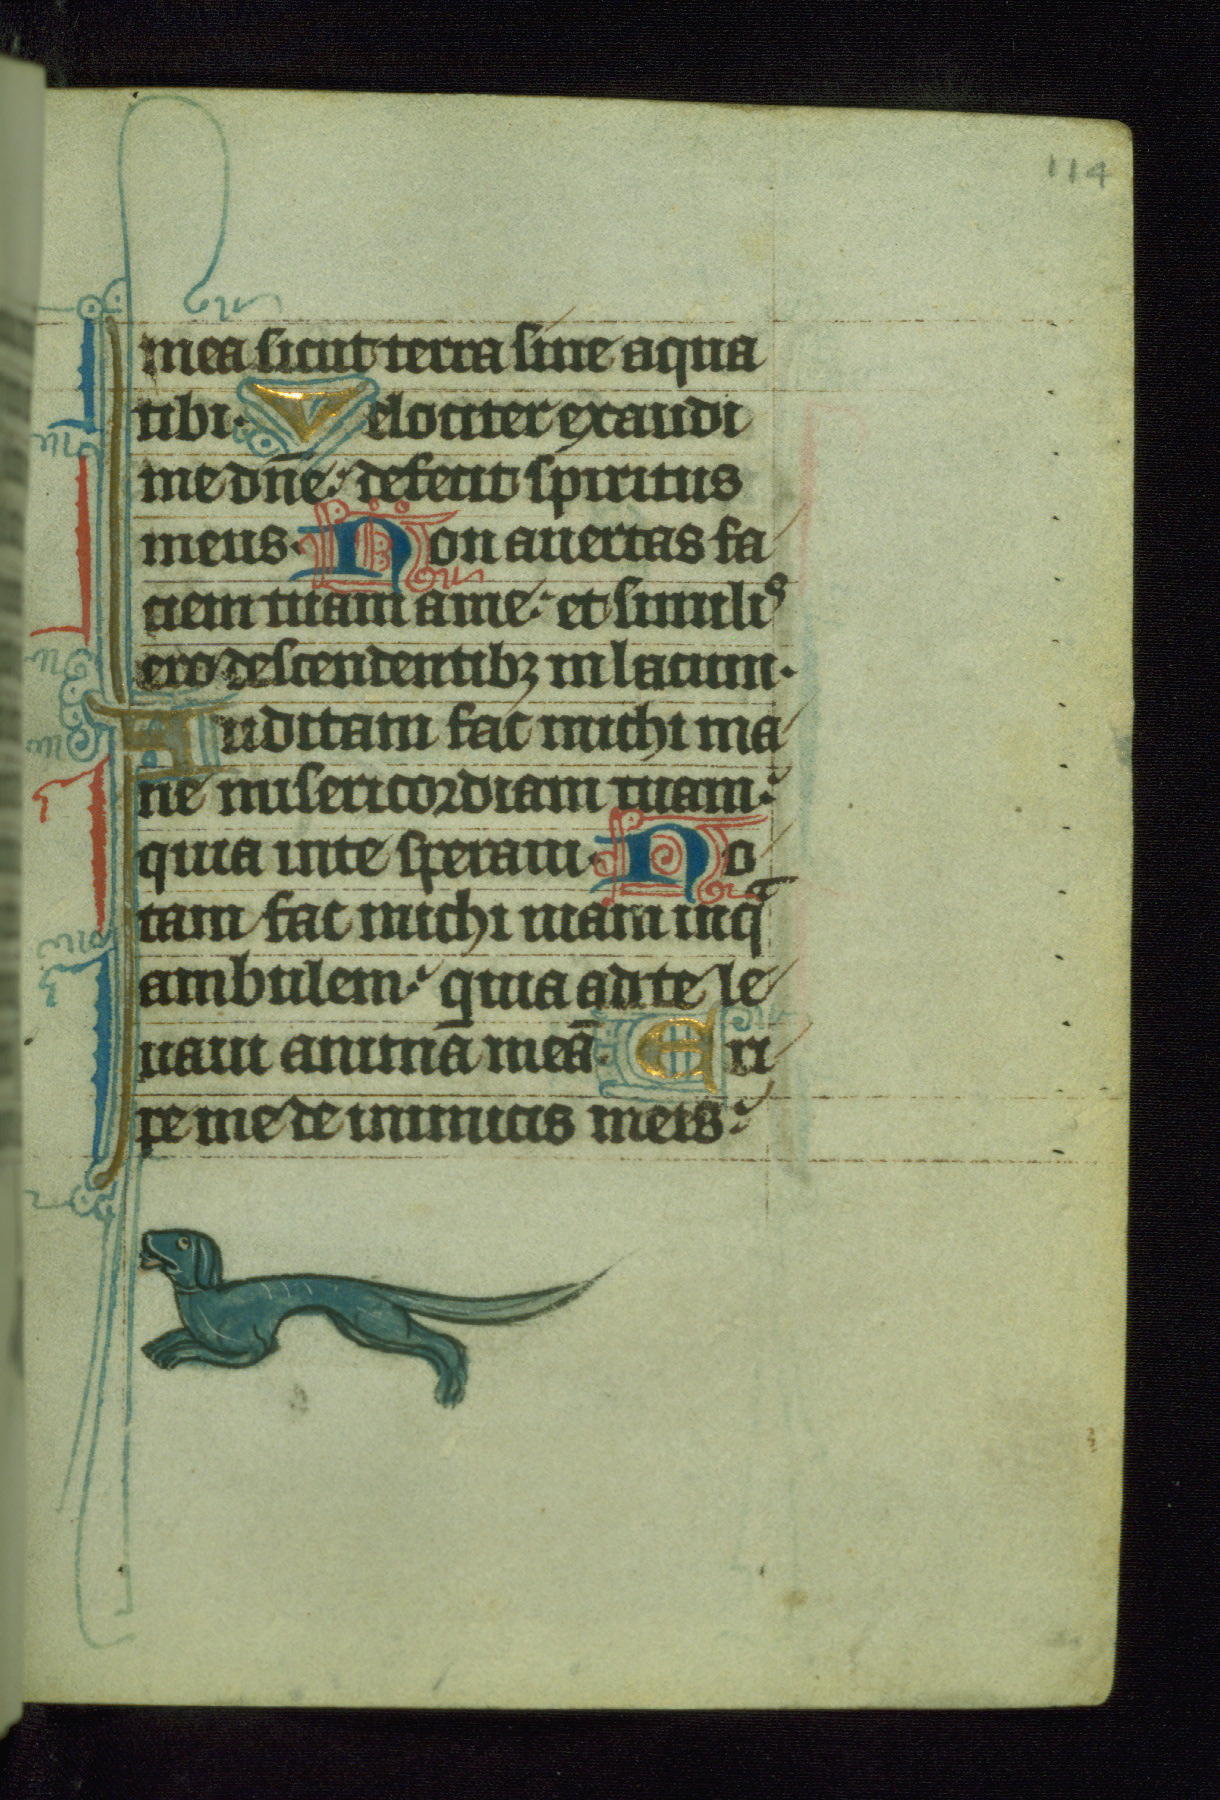 114
mea sicut terra sine aqua
tibi. Velociter exaudi
me dn̄e: defecit spiritus
meus. Non auertas fa
ciem tuam a me: et simil'
ero descendentibꝫ in lacum.
Auditam fac michi ma
ne misericordiam tuam:
quia in te speraui. No
tam fac michi uiam in qᷓ
ambulem: quia ad te le
uaui animā meā. Eri
pe me de inimicis meis: